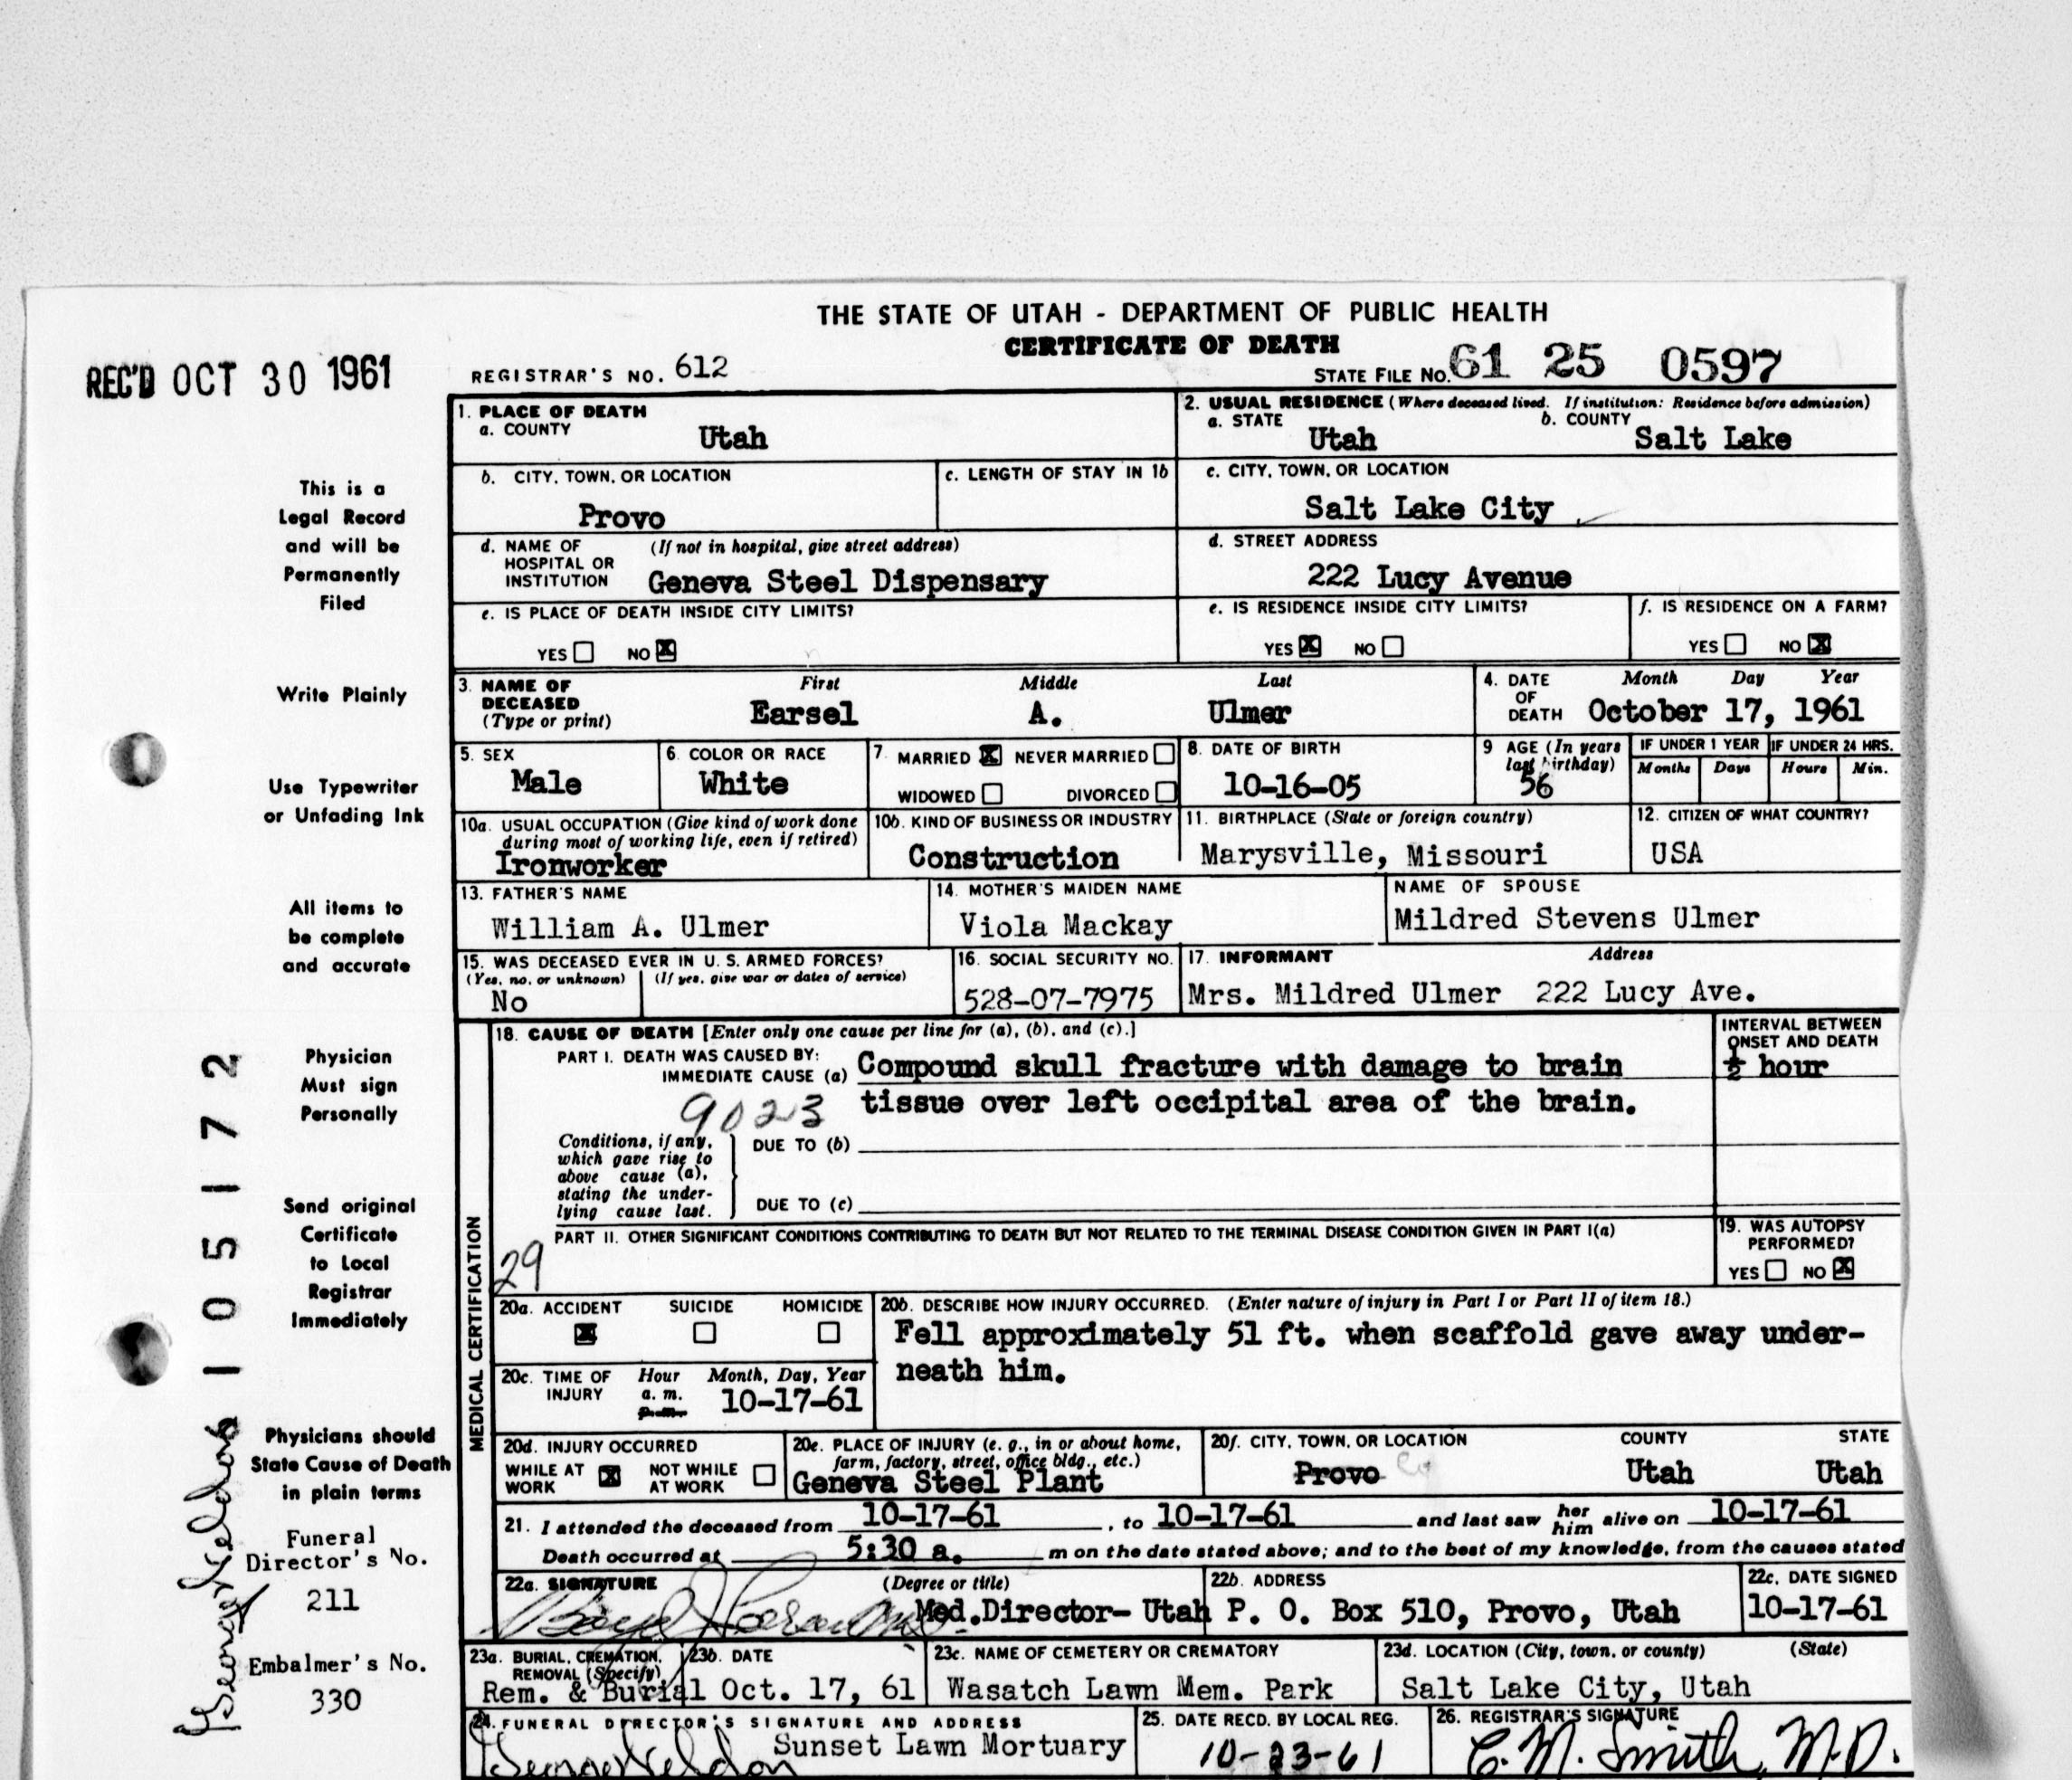 THE STATE OF UTAH - DEPARTMENT OF PUBLIC HEALTH
CERTIFICATE OF DEATH
REC'D OCT 30 1961
REGISTRAR'S NO. 612
STATE FILE NO. 61 25 0597
1. PLACE OF DEATH
a. COUNTY Utah
2. USUAL RESIDENCE (Where deceased lived. If institution: Residence before admission)
a. STATE Utah b. COUNTY Salt Lake
b. CITY, TOWN, OR LOCATION Provo
c. LENGTH OF STAY IN 1b
c. CITY, TOWN, OR LOCATION Salt Lake City
d. NAME OF HOSPITAL OR INSTITUTION (If not in hospital, give street address) Geneva Steel Dispensary
d. STREET ADDRESS 222 Lucy Avenue
e. IS PLACE OF DEATH INSIDE CITY LIMITS?
YES NO X
e. IS RESIDENCE INSIDE CITY LIMITS?
YES X NO
f. IS RESIDENCE ON A FARM?
YES NO X
3. NAME OF DECEASED (Type or print)
First Middle Last
Earsel A. Ulmer
4. DATE OF DEATH Month Day Year
October 17, 1961
5. SEX Male
6. COLOR OR RACE White
7. MARRIED X NEVER MARRIED
WIDOWED DIVORCED
8. DATE OF BIRTH 10-16-05
9 AGE (In years last birthday) 56
IF UNDER 1 YEAR Months Days
IF UNDER 24 HRS. Hours Min.
10a. USUAL OCCUPATION (Give kind of work done during most of working life, even if retired) Ironworker
10b. KIND OF BUSINESS OR INDUSTRY Construction
11. BIRTHPLACE (State or foreign country) Marysville, Missouri
12. CITIZEN OF WHAT COUNTRY? USA
13. FATHER'S NAME William A. Ulmer
14. MOTHER'S MAIDEN NAME Viola Mackay
NAME OF SPOUSE Mildred Stevens Ulmer
15. WAS DECEASED EVER IN U. S. ARMED FORCES?
(Yes, no, or unknown) (If yes, give war or dates of service)
No
16. SOCIAL SECURITY NO. 528-07-7975
17. INFORMANT Address
Mrs. Mildred Ulmer 222 Lucy Ave.
18. CAUSE OF DEATH [Enter only one cause per line for (a), (b), and (c).]
INTERVAL BETWEEN ONSET AND DEATH
PART I. DEATH WAS CAUSED BY:
IMMEDIATE CAUSE (a) Compound skull fracture with damage to brain ½ hour
9023 tissue over left occipital area of the brain.
Conditions, if any, which gave rise to above cause (a), stating the underlying cause last.
DUE TO (b)
DUE TO (c)
PART II. OTHER SIGNIFICANT CONDITIONS CONTRIBUTING TO DEATH BUT NOT RELATED TO THE TERMINAL DISEASE CONDITION GIVEN IN PART I(a)
29
19. WAS AUTOPSY PERFORMED?
YES NO X
MEDICAL CERTIFICATION
20a. ACCIDENT SUICIDE HOMICIDE
X
20b. DESCRIBE HOW INJURY OCCURRED. (Enter nature of injury in Part I or Part II of item 18.)
Fell approximately 51 ft. when scaffold gave away under-
neath him.
20c. TIME OF INJURY Hour a. m. p. m. Month, Day, Year
10-17-61
20d. INJURY OCCURRED
WHILE AT WORK X NOT WHILE AT WORK
20e. PLACE OF INJURY (e. g., in or about home, farm, factory, street, office bldg., etc.)
Geneva Steel Plant
20f. CITY, TOWN, OR LOCATION COUNTY STATE
Provo Utah Utah
21. I attended the deceased from 10-17-61, to 10-17-61 and last saw her him alive on 10-17-61
Death occurred at 5:30 a. m on the date stated above; and to the best of my knowledge, from the causes stated
22a. SIGNATURE (Degree or title)
Med.Director- Utah
22b. ADDRESS
P. O. Box 510, Provo, Utah
22c. DATE SIGNED
10-17-61
23a. BURIAL, CREMATION, REMOVAL (Specify)
Rem. & Burial
23b. DATE
Oct. 17, 61
23c. NAME OF CEMETERY OR CREMATORY
Wasatch Lawn Mem. Park
23d. LOCATION (City, town, or county) (State)
Salt Lake City, Utah
24. FUNERAL DIRECTOR'S SIGNATURE AND ADDRESS
Sunset Lawn Mortuary
25. DATE RECD. BY LOCAL REG.
10-23-61
26. REGISTRAR'S SIGNATURE
C. M. Smith, M.D.
This is a
Legal Record
and will be
Permanently
Filed
Write Plainly
Use Typewriter
or Unfading Ink
All items to
be complete
and accurate
Physician
Must sign
Personally
Send original
Certificate
to Local
Registrar
Immediately
Physicians should
State Cause of Death
in plain terms
Funeral
Director's No.
211
Embalmer's No.
330
105172